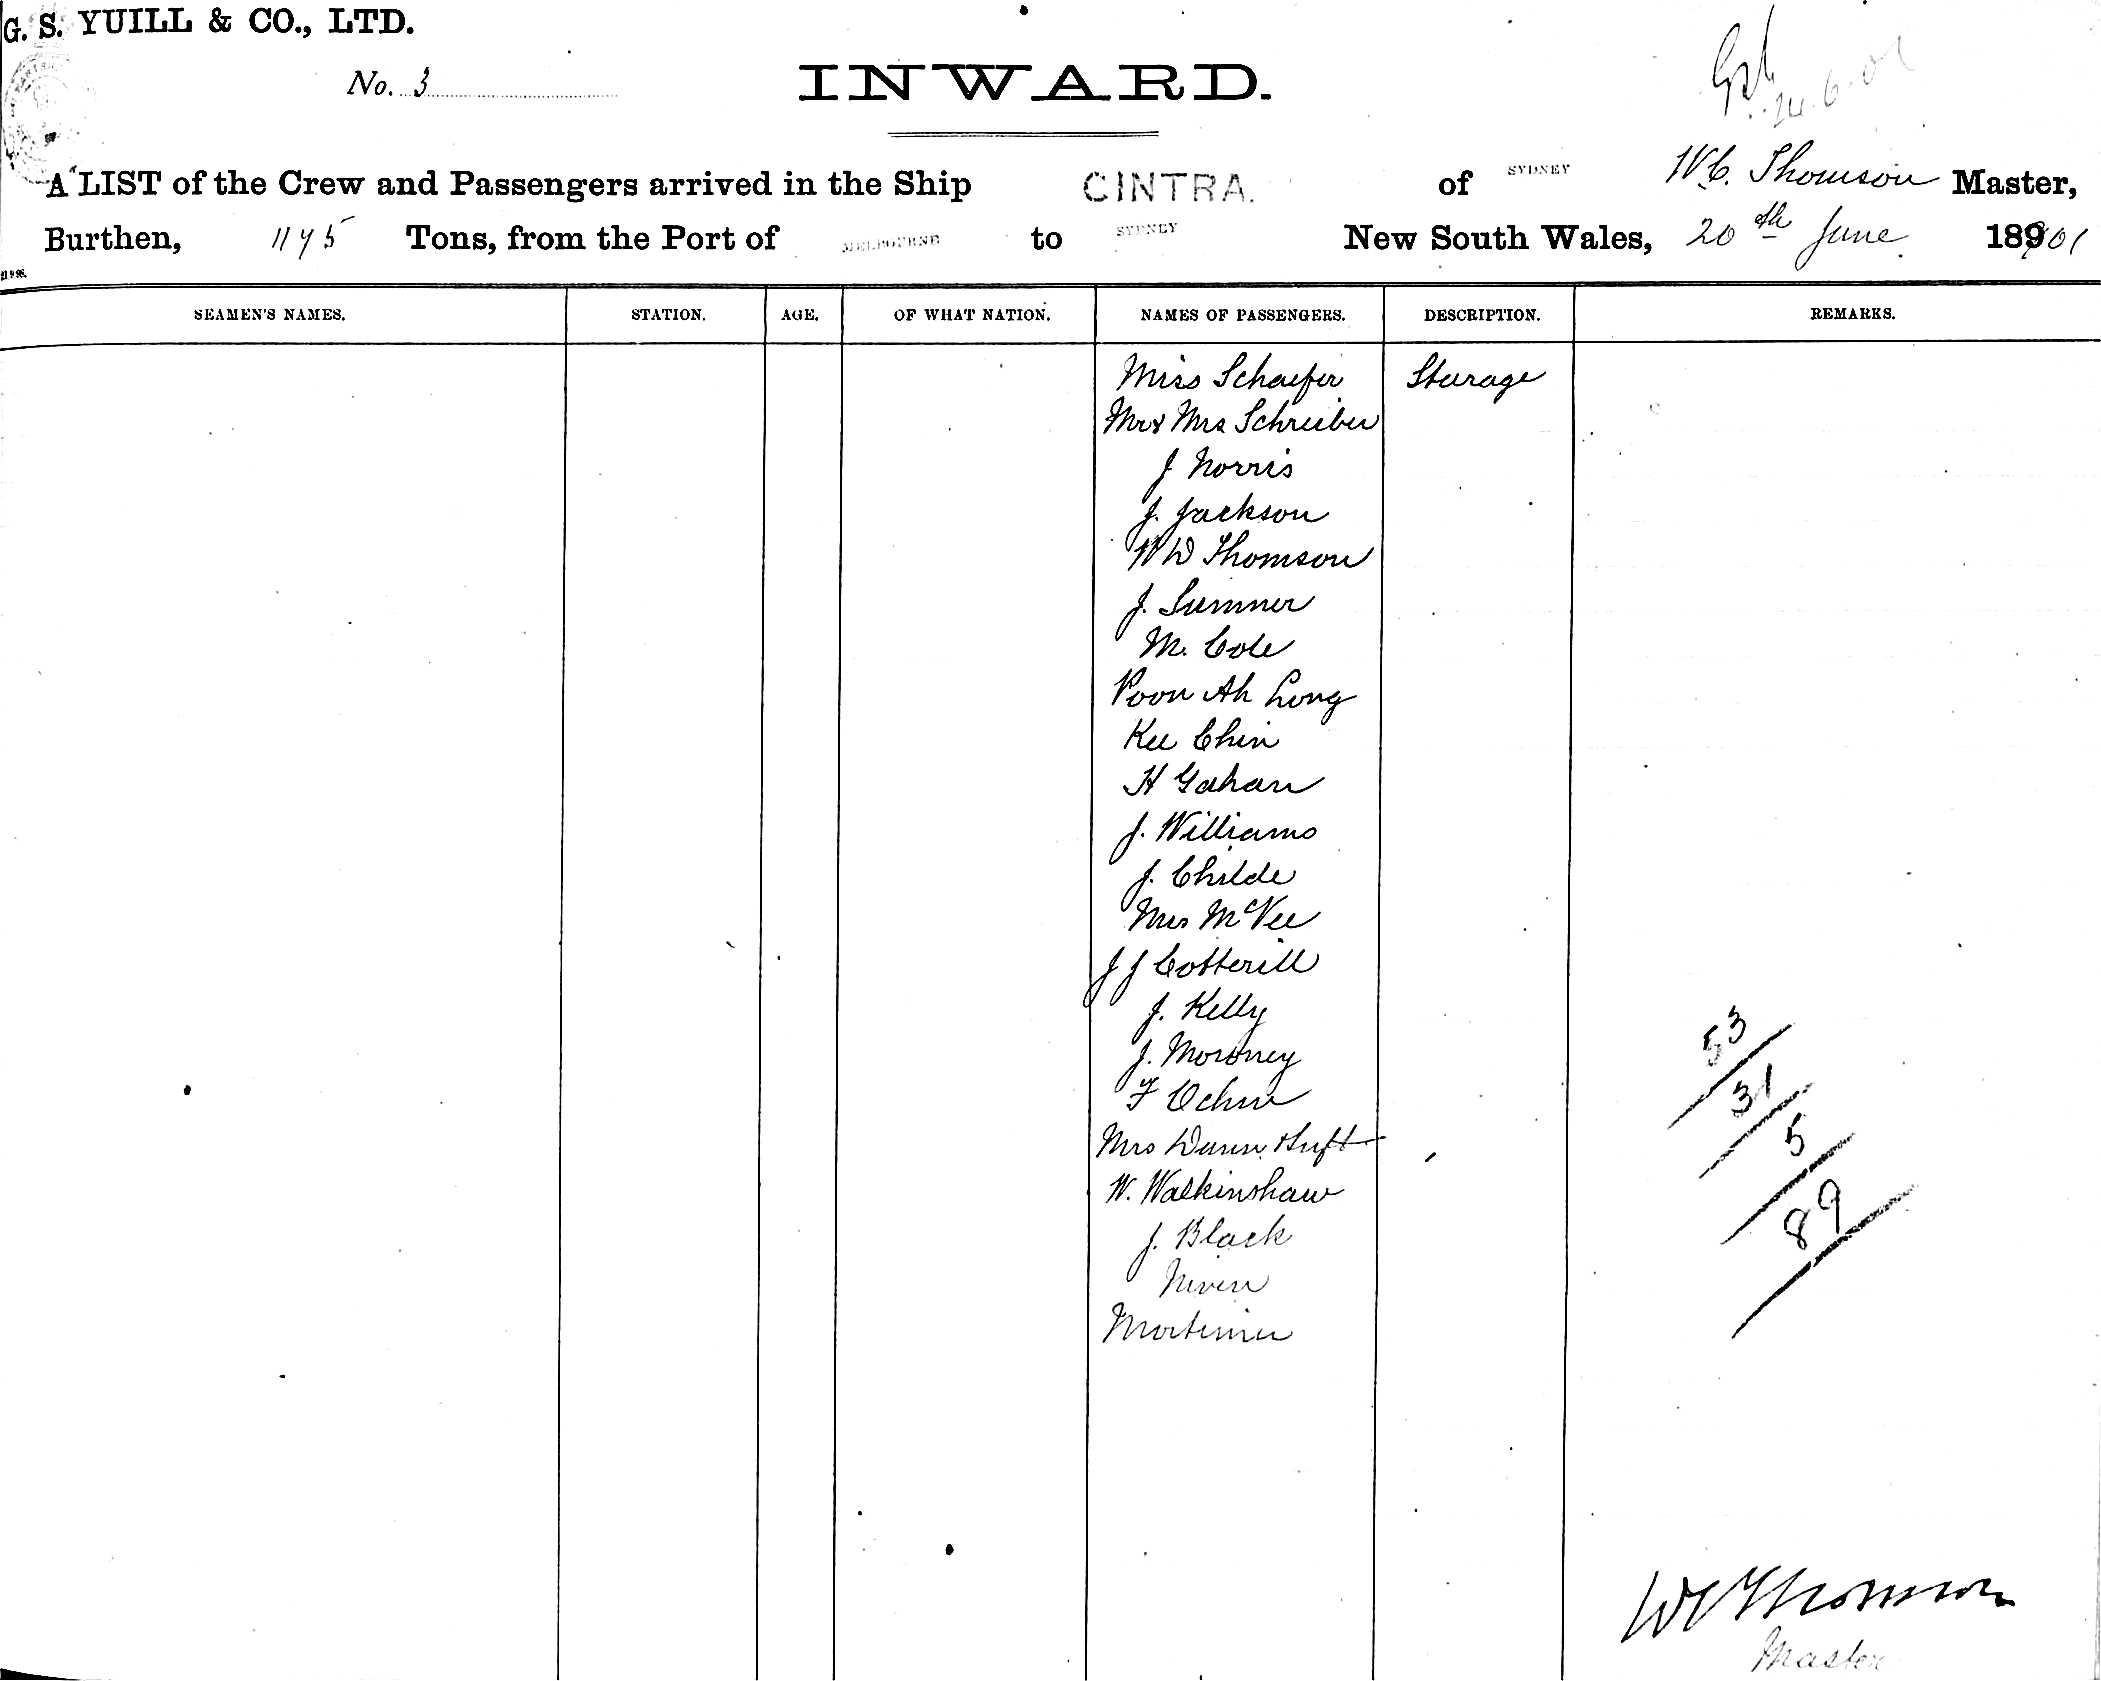 G. S. YUILL & CO., LTD.
No. 3
INWARD.
24.6.01
A LIST of the Crew and Passengers arrived in the Ship CINTRA. of SYDNEY W.C. Thomson Master,
Burthen, 1175 Tons, from the Port of MELBOURNE to SYDNEY New South Wales, 20th June 18901
SEAMEN'S NAMES. STATION. AGE. OF WHAT NATION. NAMES OF PASSENGERS. DESCRIPTION. REMARKS.
Miss Schaefer Sturage
Mr & Mrs Schreiber
J Norris
J. Jackson
W D Thomson
J. Sumner
M. Cole
Poon Ah Long
Kee Chin
H Gahan
J. Williams
J. Childe
Mrs McVee
J J Cotterill
J. Kelly
J. Moroney
F
Mrs Dunn
W. Walkinshaw
J. Black
Niven
Mortimer
53
31
5
89
W C Thomson
Master